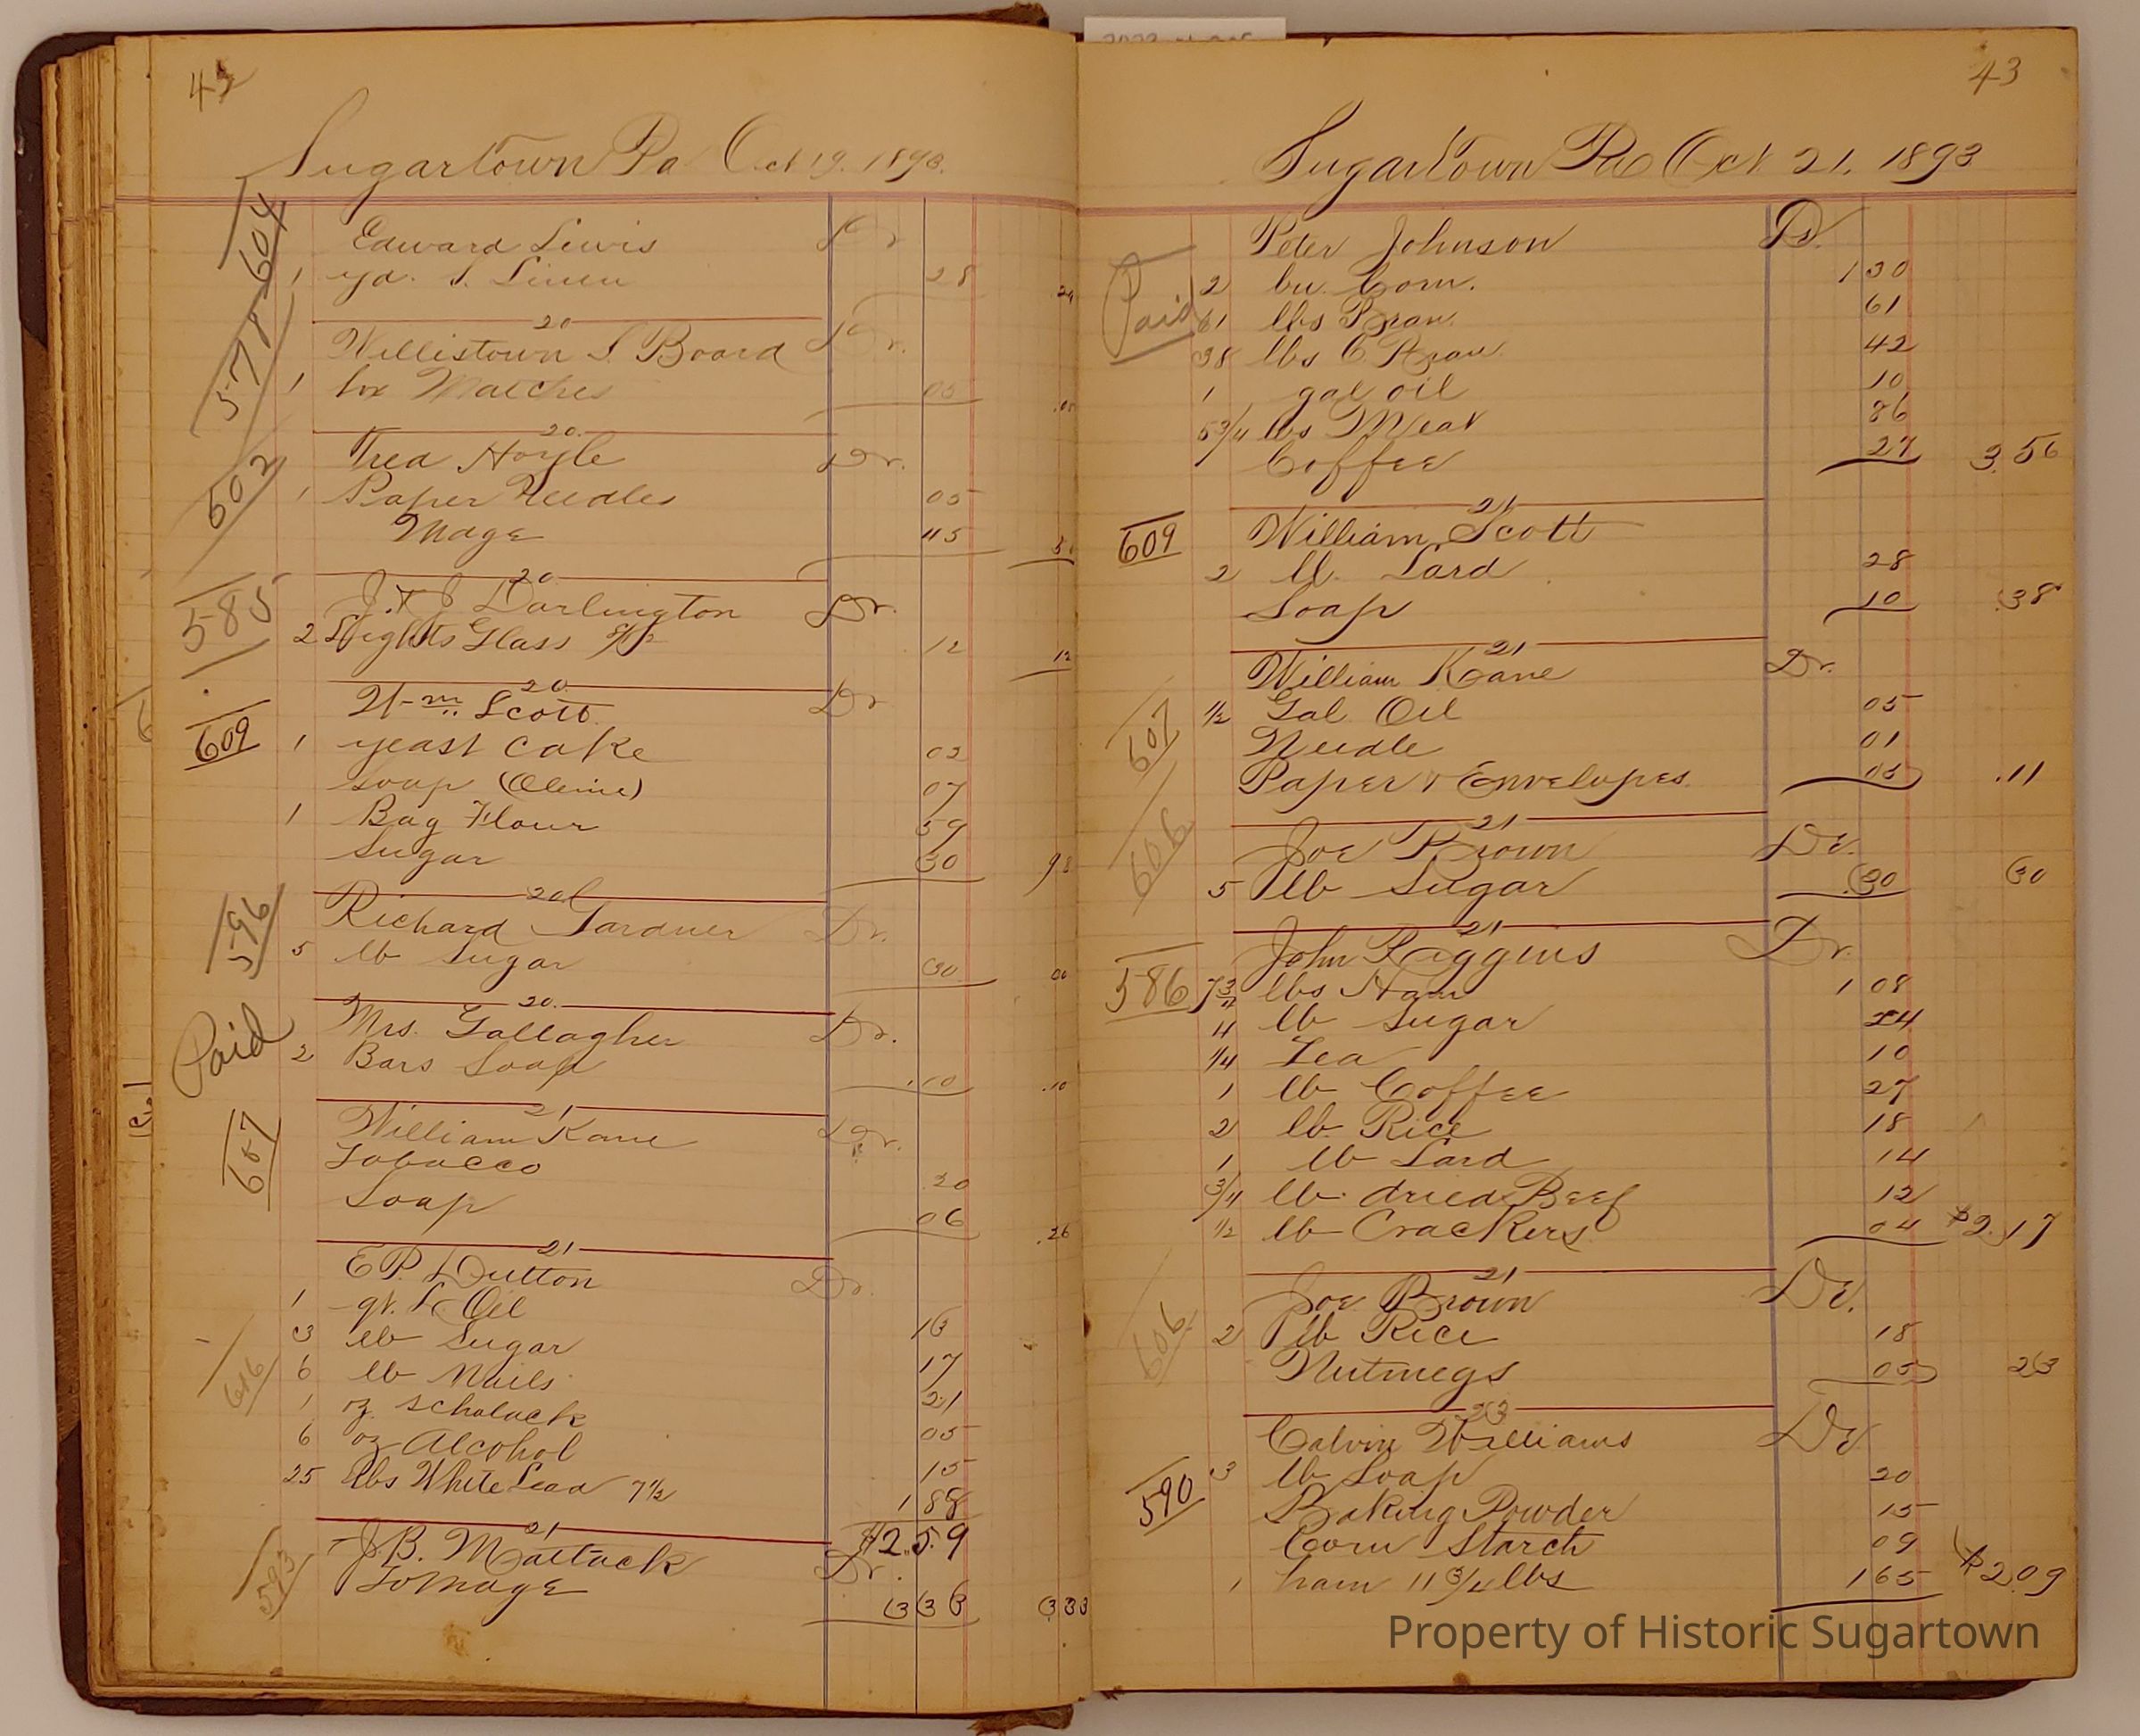 42
Sugartown Pa Oct 19. 1893.
604 Edward Lewis Dr
1 yd. S. Linen 28
20
578 Willistown S. Board Dr.
1 box Matches 05 .05
20.
602 Fred Hoyle Dr.
1 Paper Needles 05
Mdge 45
20
585 J. & J Darlington Dr.
2 Lights Glass 12 12
20
609 Wm. Scott Dr
1 yeast cake 02
Soap (Oleine) 07
1 Bag Flour 59
Sugar 30 98
20
596 Richard Gardner Dr.
5 lb Sugar 30
20.
Paid Mrs. Gallagher Dr.
2 Bars Soap .10 .10
21
607 William Kane Dr.
Tobacco 20
Soap 06 .26
21
E P. Dutton Dr.
1 qt. L Oil 13
3 lb Sugar 17
616 6 lb Nails 21
1 oz schelack 05
6 oz Alcohol 15
25 lbs White Lead 7½ 1 88
$2.59
21
593 J. B. Mattack Dr.
To Mdge 3 33 3 33
43
Sugartown Pa Oct 21. 1893
Peter Johnson Dr.
Paid 2 bu. Corn. 1 30
61 lbs Bran 61
38 lbs C. Bran 42
1 gal oil 10
5 3/4 lbs Meat 86
Coffee 27 3.56
21
609 William Scott
2 lb. Lard 28
Soap 10 .38
21
William Kane Dr.
607 ½ Gal Oil 05
Needle 01
Paper & Envelopes 05 .11
21
606 Joe Brown Dr.
5 lb Sugar 30 30
21
John Riggins Dr.
586 7 3/4 lbs Ham 1 08
4 lb Sugar 24
1/4 Tea 10
1 lb Coffee 27
2 lb Rice 18
1 lb Lard 14
3/4 lb dried Beef 12
½ lb Crackers 04 $2.17
21
606 Joe Brown Dr.
2 lb Rice 18
Nutmegs 05 23
23
Calvin Williams Dr
590 3 lb Soap 20
Baking Powder 15
Corn Starch 09
1 ham 11 3/4 lbs 1 65 $2.09
Property of Historic Sugartown